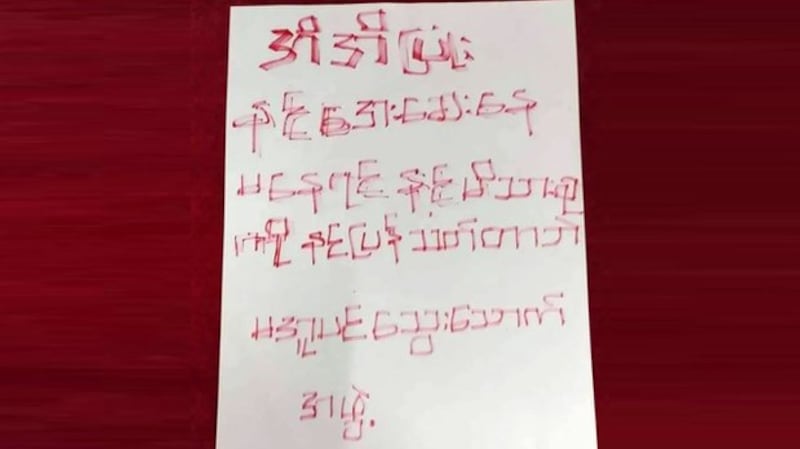 အိအိပြုံး
နင် အေးဆေးနေ
မနေရင် နင့်မိသားစု
ကို နင်ပြန်သတ်တာဘဲ
မအူပင်သွေးသောက်
အဖွဲ့